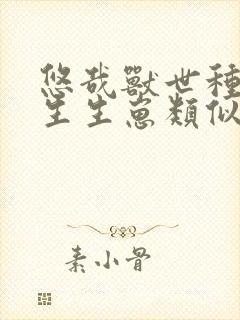 悠哉獸世種
生生崽類似
素小骨